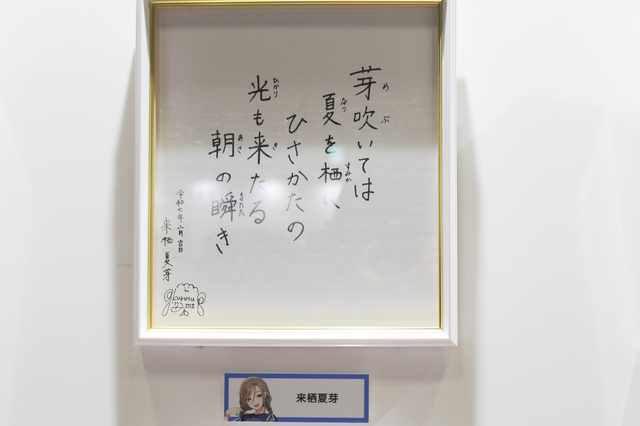 芽吹いては
めぶ
夏を栖に
なつ
すみか
ひさかたの
光も来たる
ひかり
き
朝の瞬き
あさ
またた
令和七年二月
来栖夏芽
kurusu
na2me
来栖夏芽